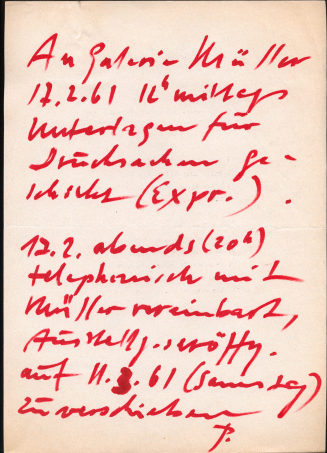 An Galerie Müller
17.2.61 12h mittags
Unterlagen für
Drucksachen ge-
schickt (Expr.).
17.2. abends (20h)
telephonisch mit
Müller vereinbart,
Ausstellg.seröffg.
auf 11.3.61 (Samstag)
zu verschieben
P.